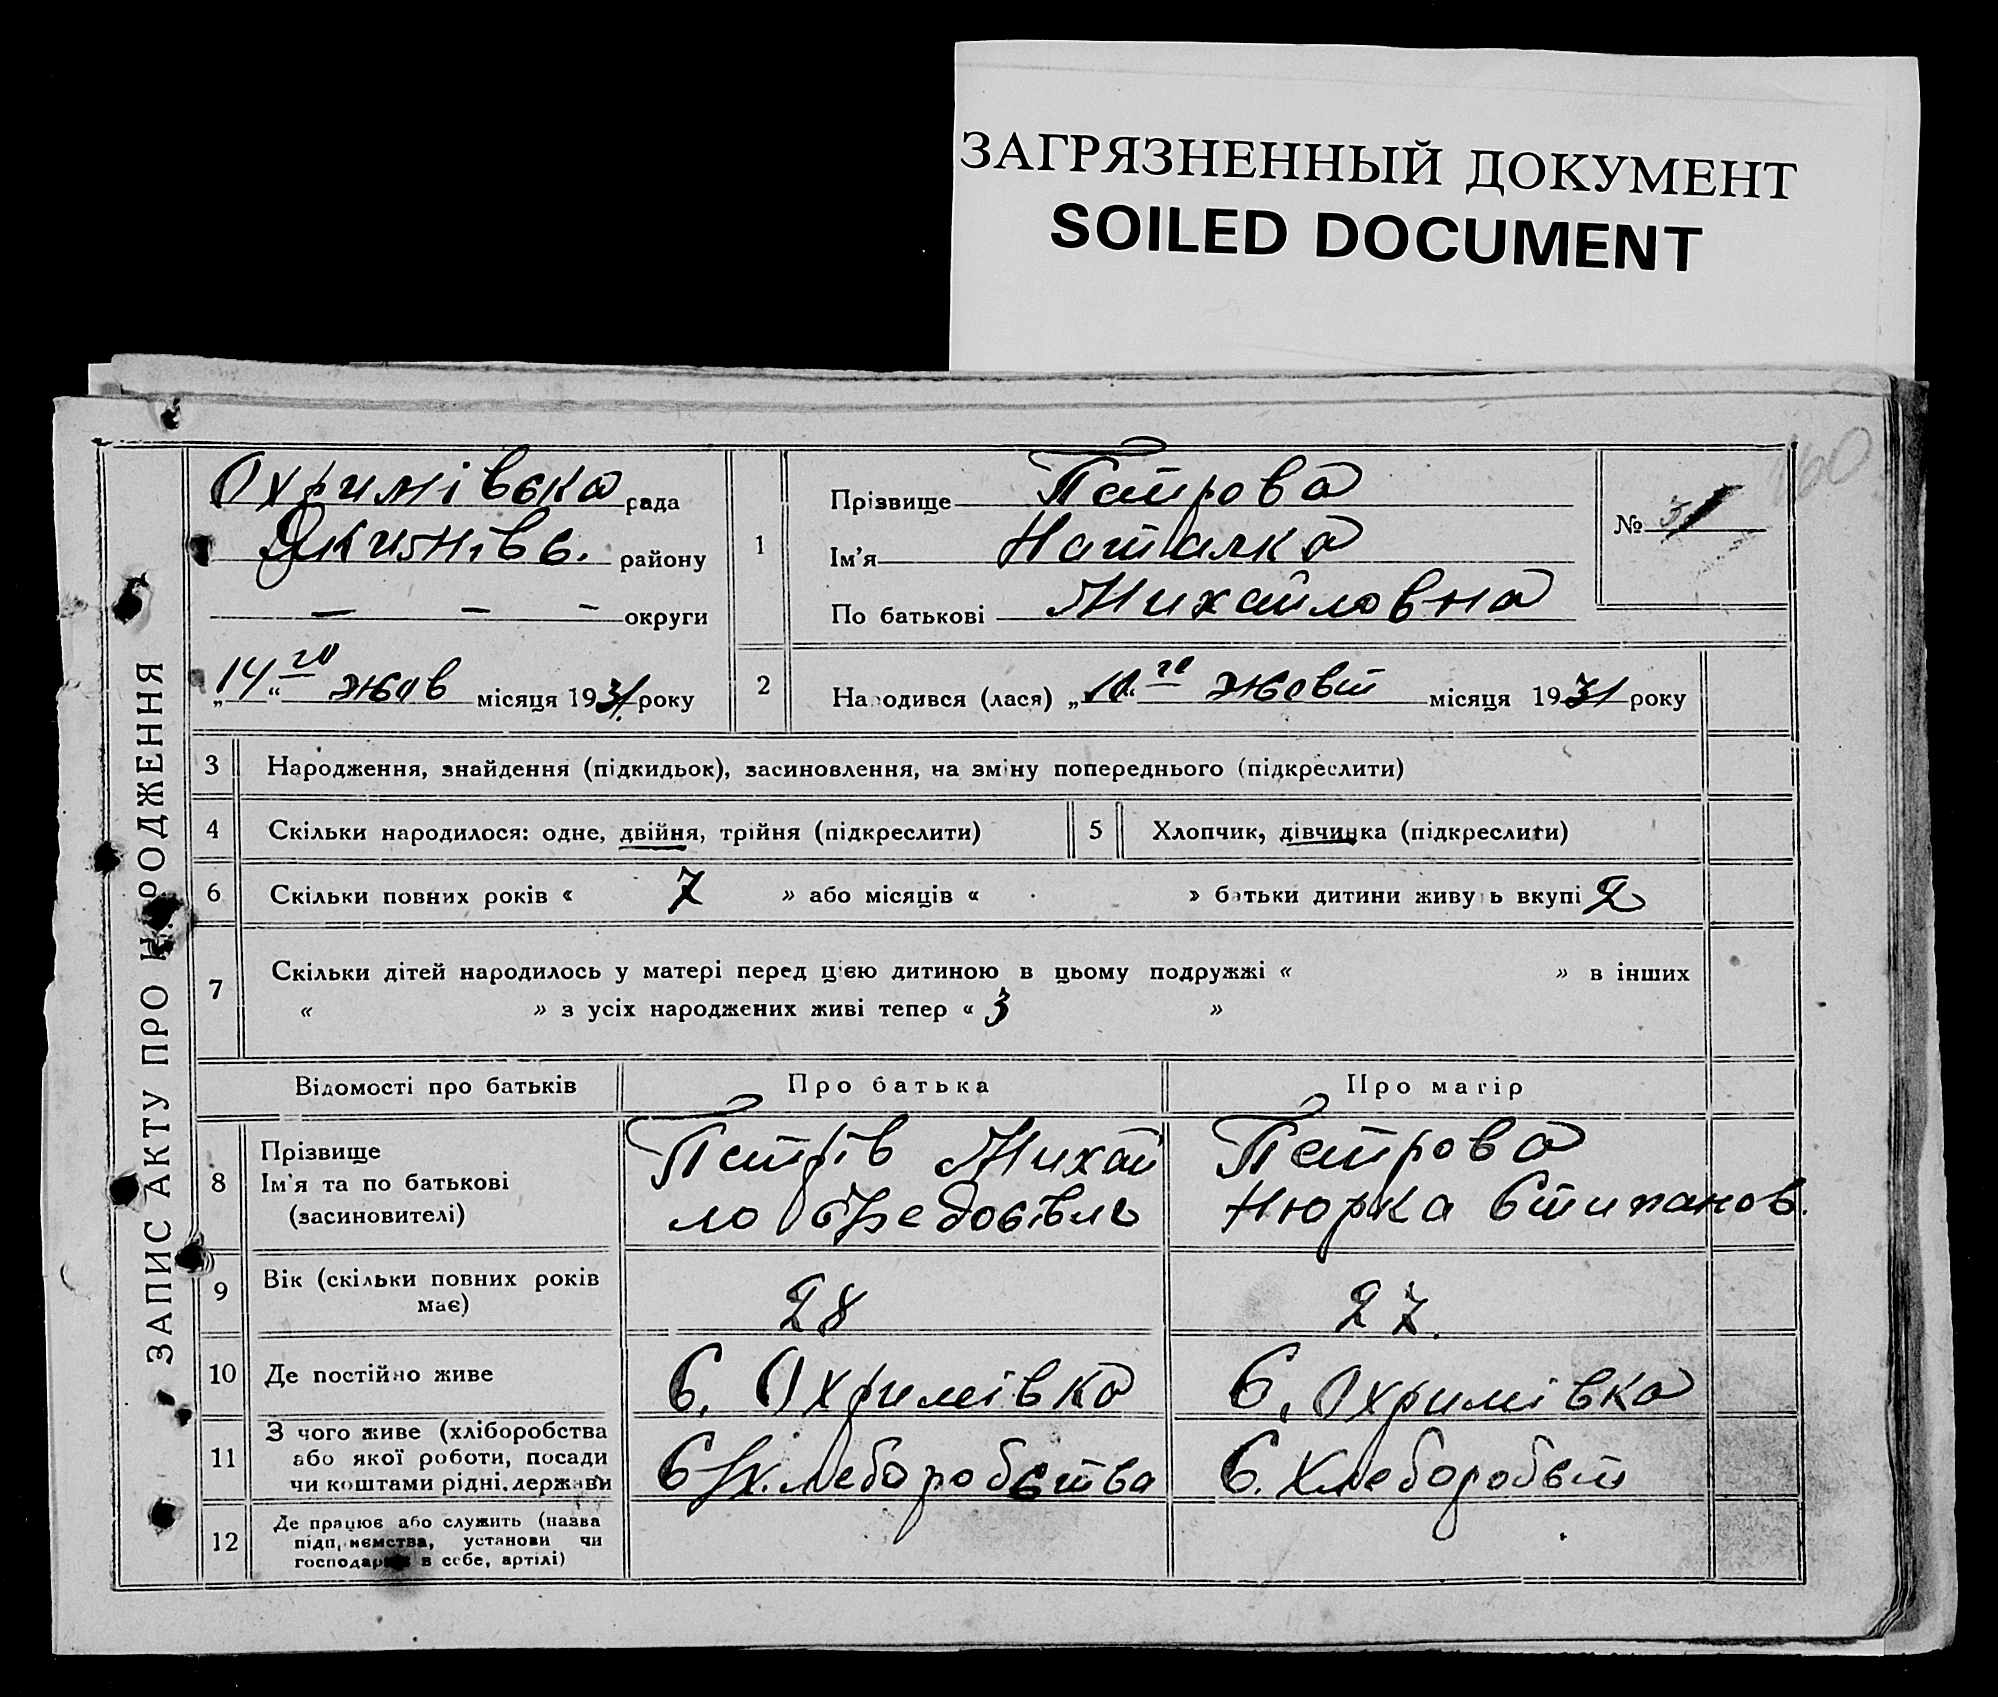 ЗАГРЯЗНЕННЫЙ ДОКУМЕНТ
SOILED DOCUMENT
160
ЗАПИС АКТУ ПРО НАРОДЖЕННЯ
Охримівска рада
Якимнівс. району
— — — округи
„14го“ жов місяця 1931 року
1
Прізвище Петрова
Ім'я Наталка
По батькові Михайловна
№ 31
2
Народився (лася) „10го“ жовт місяця 1931 року
3 Народження, знайдення (підкидьок), засиновлення, на зміну попереднього (підкреслити)
4 Скільки народилося: одне, двійня, трійня (підкреслити) 5 Хлопчик, дівчинка (підкреслити)
6 Скільки повних років « 7 » або місяців « » батьки дитини живуть вкупі 2
7 Скільки дітей народилось у матері перед цією дитиною в цьому подружжі « » в інших
« » з усіх народжених живі тепер « 3 »
Відомості про батьків Про батька Про матір
8 Прізвище
Ім'я та по батькові
(засиновителі)
Петрів Михай
ло
Петрова
Нюрка Стипанов.
9 Вік (скільки повних років
має)
28 27.
10 Де постійно живе С. Охримівка С. Охримівка
11 З чого живе (хліборобства
або якої роботи, посади
чи коштами рідні, держави
С/х. хлеборобства С. Хлеборобст
12 Де працює або служить (назва
підприємства, установи чи
господарює в себе, артілі)